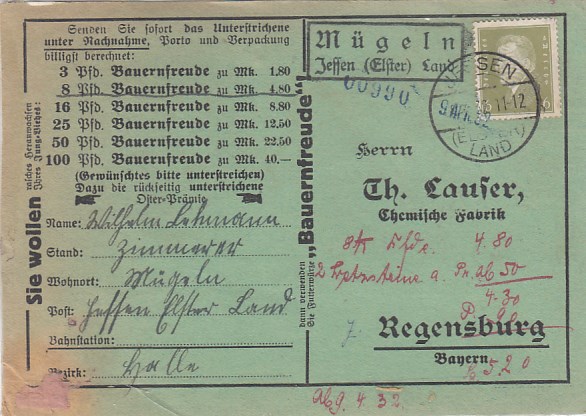 Senden Sie sofort das Unterstrichene
unter Nachnahme, Porto und Verpackung
billigst berechnet:
3 Pfd. Bauernfreude zu Mk. 1.80
8 Pfd. Bauernfreude zu Mk. 4.80
16 Pfd. Bauernfreude zu Mk. 8.80
25 Pfd. Bauernfreude zu Mk. 12.50
50 Pfd. Bauernfreude zu Mk. 22.50
100 Pfd. Bauernfreude zu Mk. 40.—
(Gewünschtes bitte unterstreichen)
Dazu die rückseitig unterstrichene
Oster-Prämie
Name: Wilhelm Lehmann
Stand: Zimmerer
Wohnort: Mügeln
Post: Jessen Elster Land
Bahnstation:
Bezirk: Halle
Sie wollen
rasches Heranwachsen
Ihres Jung-Viehes:
dann verwenden
Sie Futterwürze
„Bauernfreude"!
Mügeln
Jessen (Elster) Land
00990
JESSEN
11-12
(ELSTER)
LAND
Herrn
Th. Lauser,
Chemische Fabrik
8 Pfde. 4.80
2 a. Pr. ab 50
4.30
P. 90
Regensburg
Bayern
5.20
Abg. 4.32